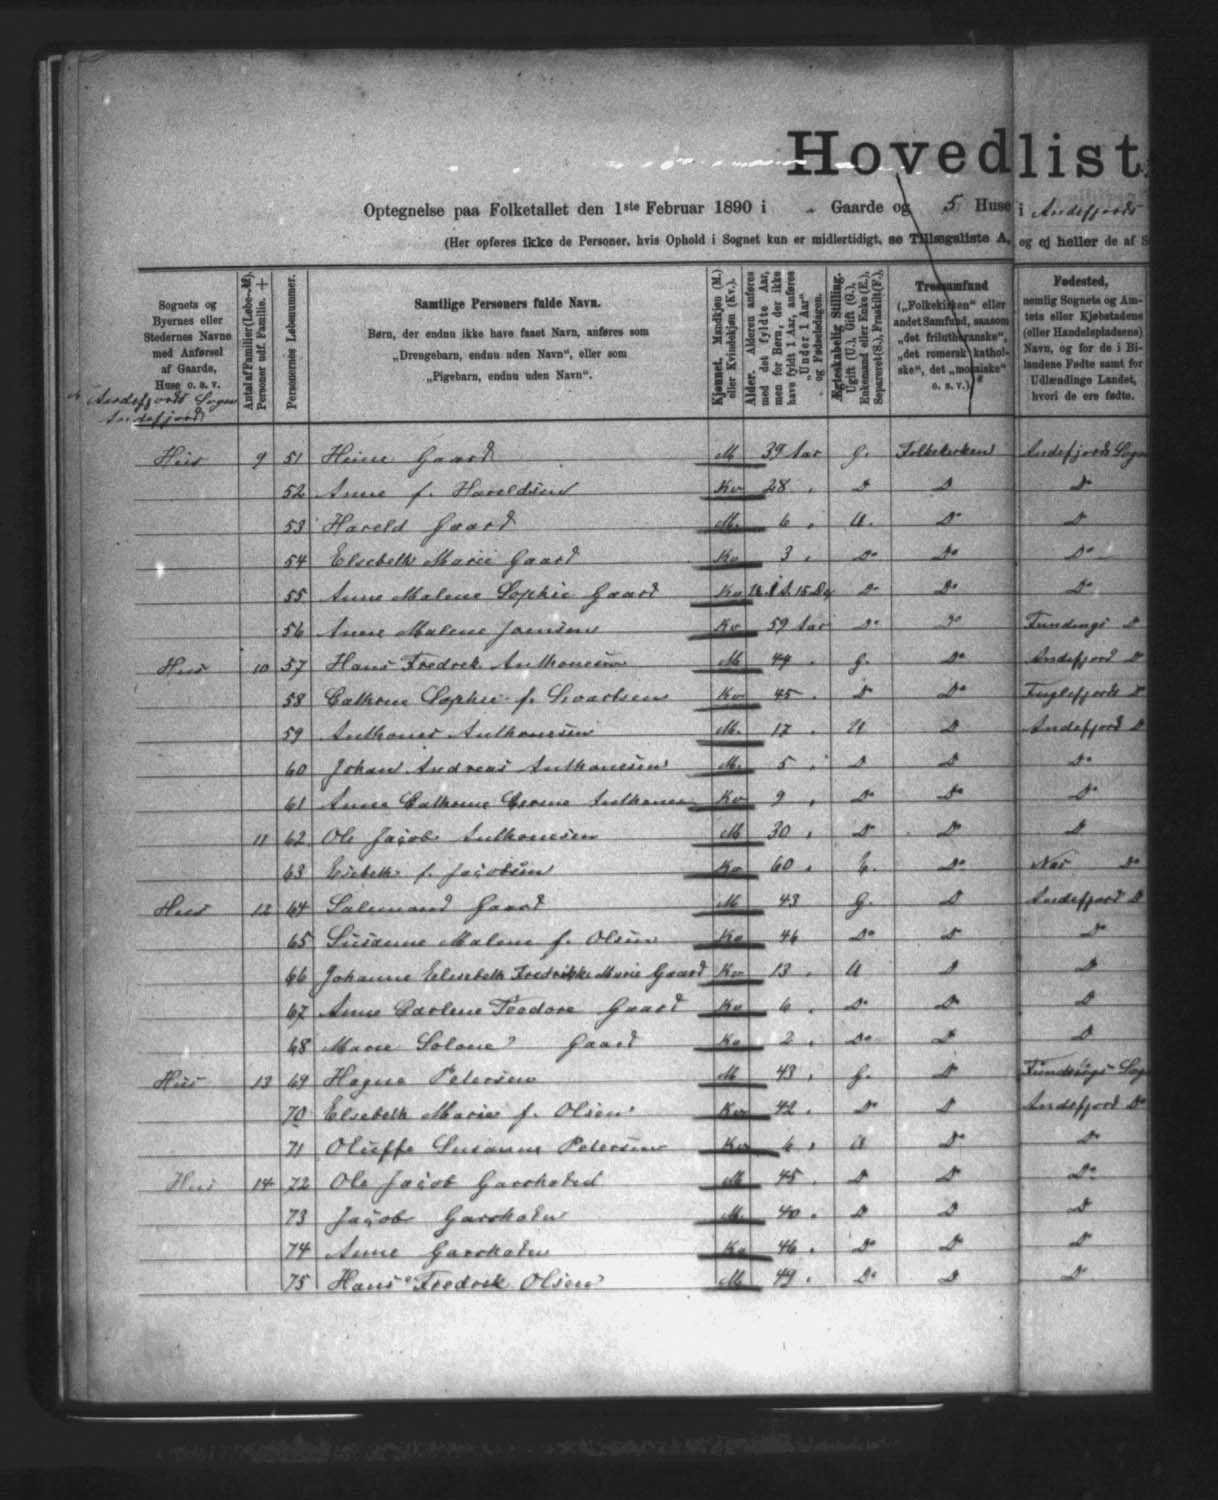 Hovedlist
Optegnelse paa Folketallet den 1ste Februar 1890 i „ Gaarde og 5 Huse i Andefjords
(Her opføres ikke de Personer, hvis Ophold i Sognet kun er midlertidigt, se Tillægsliste A, og ej heller de af S
Sognets og Byernes eller Stedernes Navne med Anførsel af Gaarde, Huse o. s. v.
Antal af Familier (Løbe-№). Personer udf. Familie. +
Personernes Løbenummer.
Samtlige Personers fulde Navn.
Børn, der endnu ikke have faaet Navn, anføres som
„Drengebarn, endnu uden Navn“, eller som
„Pigebarn, endnu uden Navn“.
Kjønnet. Mandkjøn (M.) eller Kvindekjøn (Kv.).
Alder. Alderen anføres med det fyldte Aar, men for Børn, der ikke have fyldt 1 Aar, anføres „Under 1 Aar“ og Fødselsdagen.
Ægteskabelig Stilling. Ugift (U.), Gift (G.), Enkemand eller Enke (E.), Separeret (S.), Fraskilt (F.).
Trossamfund
(„Folkekirken“ eller andet Samfund, saasom „det frilutheranske“, „det romersk katholske“, det „mosaiske“ o. s. v.).
Fødested,
nemlig Sognets og Amtets eller Kjøbstadens (eller Handelspladsens) Navn, og for de i Bilandene Fødte samt for Udlændinge Landet, hvori de ere fødte.
Andefjords Sogn
Andefjord
Hus 9 51 Heine Gaard M 39 Aar G. Folkekirken Andefjords Sogn
52 Anne f. Hareldsen Kv 28 „ D D D
53 Hareld Gaard M. 6 „ U. D D
54 Elsebeth Marie Gaard Kv 3 „ Do Do Do
55 Anne Malene Sophie Gaard Kv Do Do Do
56 Anne Malene Joensen Kv 59 Aar Do Do Fundings D
Hus 10 57 Hans Fredrek Anthonesen M 44 „ G. Do Andefjord D
58 Cathrine Sophie f. Kv 45 „ D Do Fuglefjords D
59 Anthones Anthonesen M. 17 „ U D Andefjord D
60 Johan Andreas Anthonesen M. 5 „ D D Do
61 Anna Cathrine Anthonesen Kv 9 „ Do Do Do
11 62 Ole Jacob Anthonesen M 30 „ D Do D
63 f. Jacobsen Kv 60 „ E. Do Nes Do
Hus 12 64 Gaard M 43 G. D Andefjord D
65 Susanne Malene f. Olsen Kv 46 Do D Do
66 Johanne Elisebeth Fredrikke Marie Gaard Kv 13 „ U D D
67 Anne Carlene Teodore Gaard Kv 6 „ Do Do D
68 Marie Solone Gaard Kv 2 „ Do D D
Hus 13 69 Hogne Petersen M 43 „ G. D Fundings Sogn
70 Elsebeth Marie f. Olsen Kv 42 „ Do D Andefjord Do
71 Oluffe Susanne Petersen Kv 6 „ U Do Do
Hus 14 72 Ole Jacob M 45 „ D D Do
73 Jacob M. 40 „ D D D
74 Anne Kv 46 „ Do Do D
75 Hans Fredrek Olsen M 49 „ Do D D